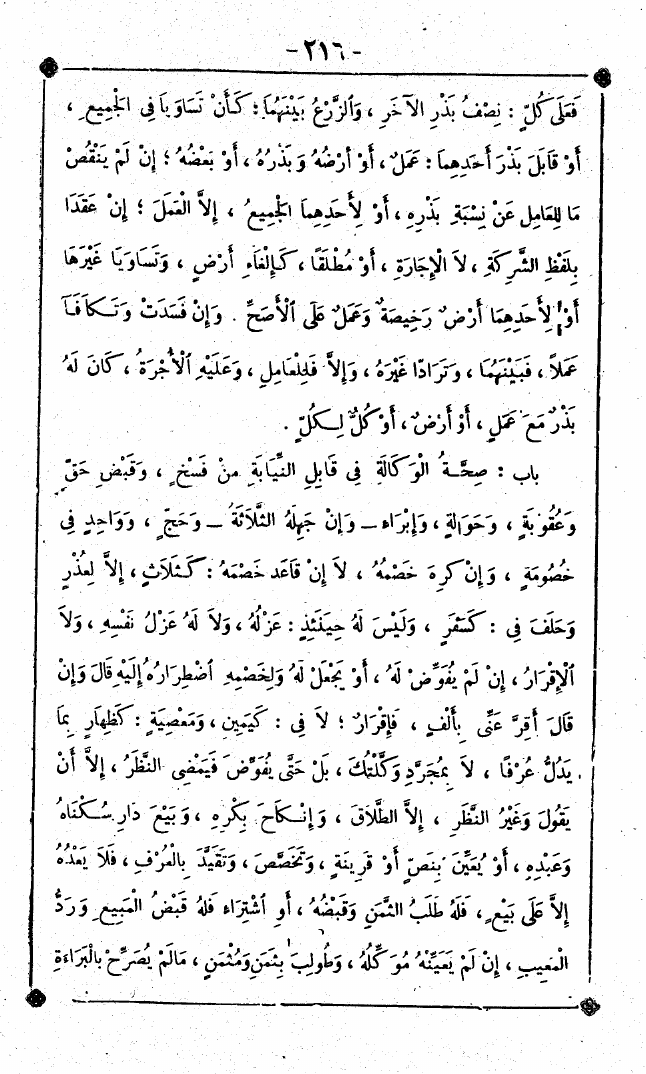 -٢١٦-
فَعَلَى كُلٍّ : نِصْفُ بَذْرِ الْآخَرِ ، وَالزَّرْعُ بَيْنَهُمَا ؛ كَأَنْ تَسَاوَيَا فِى الْجَمِيعِ ،
أَوْ قَابَلَ بَذْرَ أَحَدِهِمَا : عَمَلٌ ، أَوْ أَرْضُهُ وَبَذْرُهُ ، أَوْ بَعْضُهُ ؛ إِنْ لَمْ يَنْقُصْ
مَا لِلْعَامِلِ عَنْ نِسْبَةِ بَذْرِهِ ، أَوْ لِأَحَدِهِمَا الْجَمِيعُ ، إِلاَّ الْعَمَلَ ؛ إِنْ عَقَدَا
بِلَفْظِ الشَّرِكَةِ ، لاَ الْإِجَارَةِ ، أَوْ مُطْلَقًا ، كَإِلْغَاءِ أَرْضٍ ، وَتَسَاوَيَا غَيْرَهَا
أَوْ لِأَحَدِهِمَا أَرْضٌ رَخِيصَةٌ وَعَمَلٌ عَلَى الْأَصَحِّ . وَإِنْ فَسَدَتْ وَتَكَافَآ
عَمَلاً ، فَبَيْنَهُمَا ، وَتَرَادَّا غَيْرَهُ ، وَإِلاَّ فَلِلْعَامِلِ ، وَعَلَيْهِ الْأُجْرَةُ ، كَانَ لَهُ
بَذْرٌ مَعَ عَمَلٍ ، أَوْ أَرْضٌ ، أَوْ كُلٌّ لِكُلٍّ .
باب : صِحَّةُ الْوَكَالَةِ فِى قَابِلِ النِّيَابَةِ مِنْ فَسْخٍ ، وَقَبْضِ حَقٍّ
وَعُقُوبَةٍ ، وَحَوَالَةٍ ، وَإِبْرَاءٍ ــ وَإِنْ جَهِلَهُ الثَّلَاثَةُ ــ وَحَجٍّ ، وَوَاحِدٍ فِى
خُصُومَةٍ ، وَإِنْ كَرِهَ خَصْمُهُ ، لاَ إِنْ قَاعَدَ خَصْمَهُ : كَثَلَاثٍ ، إِلاَّ لِعُذْرٍ
وَحَلَفَ فِى : كَسَفَرٍ ، وَلَيْسَ لَهُ حِينَئِذٍ : عَزْلُهُ ، وَلاَ لَهُ عَزْلُ نَفْسِهِ ، وَلاَ
الْإِقْرَارُ ، إِنْ لَمْ يُفَوِّضْ لَهُ ، أَوْ يَجْعَلْ لَهُ وَلِخَصْمِهِ اضْطِرَارُهُ إِلَيْهِ قَالَ وَإِنْ
قَالَ أَقِرَّ عَنِّى بِأَلْفٍ ، فَإِقْرَارٌ ؛ لاَ فِى : كَيَمِينٍ ، وَمَعْصِيَةٍ : كَظِهَارٍ بِمَا
يَدُلُّ عُرْفًا ، لاَ بِمُجَرَّدِ وَكَّلْتُكَ ، بَلْ حَتَّى يُفَوِّضَ فَيَمْضِى النَّظَرُ ، إِلاَّ أَنْ
يَقُولَ وَغَيْرُ النَّظَرِ ، إِلاَّ الطَّلاَقَ ، وَإِنْكَاحَ بِكْرِهِ ، وَبَيْعَ دَارِ سُكْنَاهُ
وَعَبْدِهِ ، أَوْ يُعَيِّنَ بِنَصٍّ أَوْ قَرِينَةٍ ، وَتَخَصَّصَ ، وَتَقَيَّدَ بِالْعُرْفِ ، فَلاَ يَعْدُهُ
إِلاَّ عَلَى بَيْعٍ ، فَلَهُ طَلَبُ الثَّمَنِ وَقَبْضُهُ ، أَوِ اشْتِرَاءٍ فَلَهُ قَبْضُ الْمَبِيعِ وَرَدُّ
الْمَعِيبِ ، إِنْ لَمْ يُعَيِّنْهُ مُوَكِّلُهُ ، وَطُولِبَ بِثَمَنٍ وَمُثْمَنٍ ، مَالَمْ يُصَرِّحْ بِالْبَرَاءَةِ